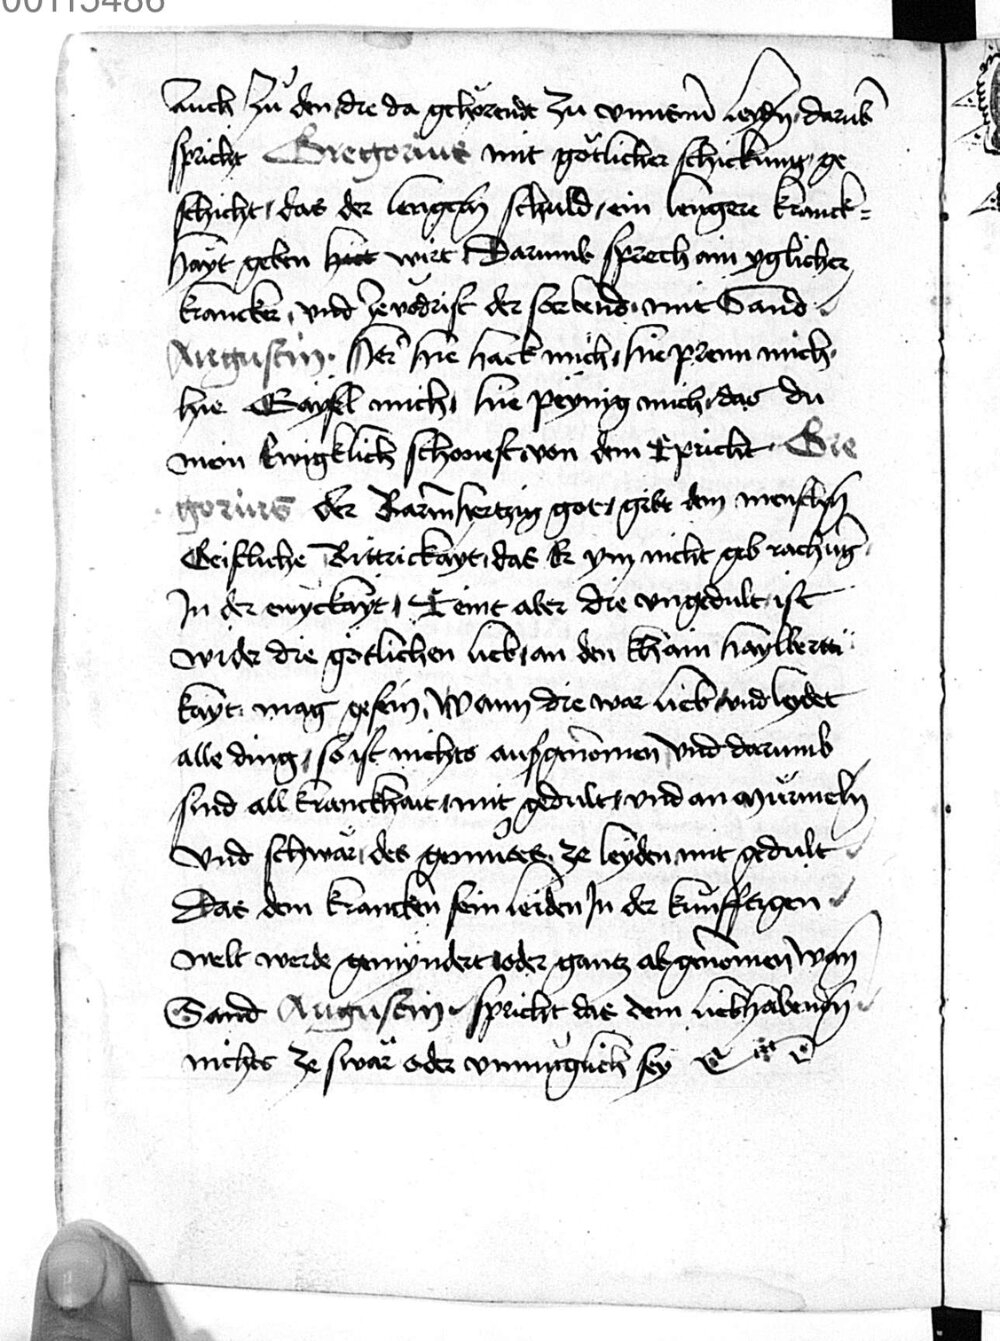 00115486
Auch zu den die da gehorende zu unnserm leyden darub
spricht Gregorius mit gotlicher schickung ge
schicht, das der lengern schuld, ein lengere kranck=
hayt geben wirt Darumb sprech ain yglicher
krancker, und zevodrist der sterbend, mit Sand
Augustin. Her hie hack mich, hie prenn mich,
hie Gaysel mich, hie peynig mich, das du
mein Ewigklich schonest, von dem Spricht Gre
gorius der Barmhertzig got, gibt dem menschen
Geistliche Bittrickayt, das Er ym nicht geb rachung
In der ewyckayt, Seint aber die ungedult ist
wider die gotlichen lieb, an den khain haylberti
kayt mag gesein, Wann die war lieb, und leydet
alle ding, so ist nichts aufgenomen, und darumb
sind all kranckhait, mit gedult, und an murmeln
Und schwär, des gemutes, ze leyden mit gedult
Das dem krancken sein leiden In der kunfftigen
welt werde gemyndert, oder gantz abgenomen, wan
Sand Augustin, spricht das dem liebhabenden
nichts ze swär oder unmuglich sey